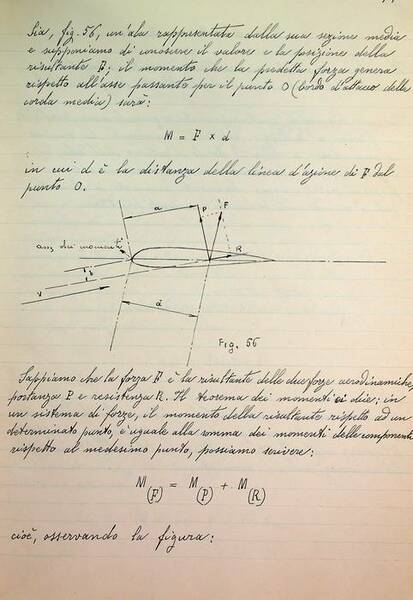 Sia, fig. 56, un'ala rappresentata dalla sua sezione media
e supponiamo di conoscere il valore e la posizione della
risultante F; il momento che la predetta forza genera
rispetto all'asse passante per il punto O (bordo d'attacco della
corda media) sarà:
M = F x d
in cui d è la distanza della linea d'azione di F dal
punto O.
a
P
F
asse dei momenti
R
V
d
Fig. 56
Sappiamo che la forza F è la risultante delle due forze aerodinamiche,
portanza P e resistenza R. Il teorema dei momenti ci dice: in
un sistema di forze, il momento della risultante rispetto ad un
determinato punto, è uguale alla somma dei momenti delle componenti
rispetto al medesimo punto, possiamo scrivere:
M(F) = M(P) + M(R)
cioè, osservando la figura: